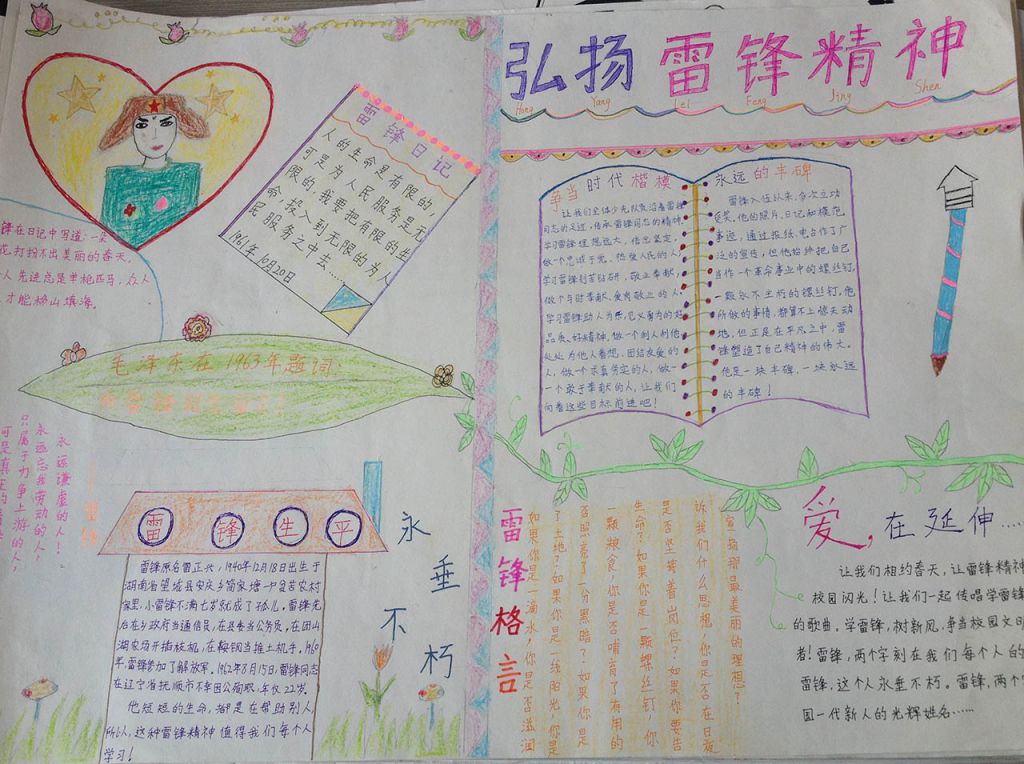 弘扬雷锋精神
Hong Yang Lei Feng Jing Shen
雷锋日记
人的生命是有限的,
可是为人民服务是无
限的,我要把有限的生
命,投入到无限的为人
民服务之中去……
1961年10月20日
锋在日记中写道:一朵
花打扮不出美丽的春天,
人先进总是单枪匹马,众人
才能移山填海。
毛泽东在1963年题词:
永远谦虚的人!
永远忘我劳动的人,
只属于力争上游的人,
可是真正的
雷锋生平
雷锋原名雷正兴,1940年12月18日出生于
湖南省望城县安庆乡简家塘一户贫苦农村
家里,小雷锋不满七岁就成了孤儿。雷锋先
后在乡政府当通信员,在县委当公务员,在团山
湖农场开拖拉机,在鞍钢当推土机手,1960
年,雷锋参加了解放军,1962年8月15日,雷锋同志
在辽宁省抚顺市不幸因公殉职,年仅22岁。
他短短的生命,都是在帮助别人,
所以,这种雷锋精神值得我们每个人
学习!
永垂不朽
争当时代楷模
让我们全体少先队员沿着雷锋
同志的足迹,传承雷锋同志的精神,
学习雷锋理想远大,信念坚定,
做一个忠诚于党、热爱人民的人;
学习雷锋刻苦钻研,敬业奉献,
做个与时奉献、爱岗敬业的人;
学习雷锋助人为乐,见义勇为的好
品质、好精神,做一个利人利他,
处处为他人着想,团结友爱的
人,做一个求真务实的人,做一
个敢于奉献的人,让我们
向着这些目标前进吧!
永远的丰碑
雷锋入伍以来,多次立功
受奖,他的照片、日记和模范
事迹,通过报纸、电台作了广
泛的宣传,但他始终把自己
当作一个革命事业中的螺丝钉,
一颗永不生朽的螺丝钉,他
所做的事情,都算不上惊天动
地,但正是在平凡之中,雷
锋塑造了自己精神的伟大。
他是一块丰碑,一块永远
的丰碑!
雷锋格言
如果你是一滴水,你是否滋润
了土地?如果你是一线阳光,你是
否照亮了一分黑暗?如果你是
一颗粮食,你是否哺育了有用的
生命?如果你是一颗螺丝钉,你
是否坚守着岗位?如果你要告
诉我们什么思想,你是否在日夜
宣扬那最美丽的理想?
爱,在延伸……
让我们相约春天,让雷锋精神
校园闪光!让我们一起传唱学雷锋
的歌曲,学雷锋,树新风,争当校园文明
者!雷锋,两个字刻在我们每个人的
雷锋,这个人永垂不朽。雷锋,两个字
国一代新人的光辉姓名……